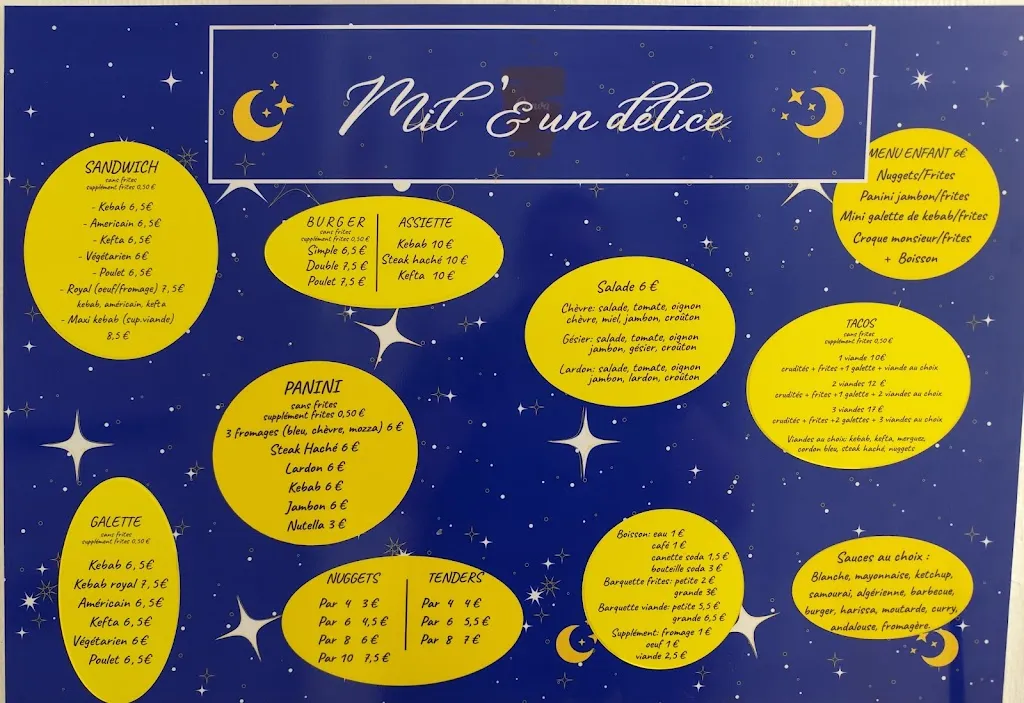 Mil'& un délice
SANDWICH
sans frites
supplément frites 0,50 €
- Kebab 6,5€
- Americain 6,5€
- Kefta 6,5€
- Végétarien 6€
- Poulet 6,5€
- Royal (oeuf/fromage) 7,5€
kebab, américain, kefta
- Maxi kebab (sup.viande)
8,5 €
BURGER
sans frites
supplément frites 0,50 €
Simple 6,5 €
Double 7,5 €
Poulet 7,5 €
ASSIETTE
Kebab 10 €
Steak haché 10 €
Kefta 10 €
MENU ENFANT 6€
Nuggets/Frites
Panini jambon/frites
Mini galette de kebab/frites
Croque monsieur/frites
+ Boisson
Salade 6 €
Chèvre: salade, tomate, oignon
chèvre, miel, jambon, croûton
Gésier: salade, tomate, oignon
jambon, gésier, croûton
Lardon: salade, tomate, oignon
jambon, lardon, croûton
TACOS
sans frites
supplément frites 0,50 €
1 viande 10€
crudités + frites +1 galette + viande au choix
2 viandes 12 €
crudités + frites +1 galette + 2 viandes au choix
3 viandes 17 €
crudités + frites +2 galettes + 3 viandes au choix
Viandes au choix: kebab, kefta, merguez,
cordon bleu, steak haché, nuggets
PANINI
sans frites
supplément frites 0,50 €
3 fromages (bleu, chèvre, mozza) 6 €
Steak Haché 6 €
Lardon 6 €
Kebab 6 €
Jambon 6 €
Nutella 3 €
GALETTE
sans frites
supplément frites 0,50 €
Kebab 6,5€
Kebab royal 7,5€
Américain 6,5€
Kefta 6,5€
Végétérien 6€
Poulet 6,5€
NUGGETS
Par 4 3 €
Par 6 4,5 €
Par 8 6 €
Par 10 7,5 €
TENDERS
Par 4 4 €
Par 6 5,5 €
Par 8 7 €
Boisson: eau 1 €
café 1 €
canette soda 1,5 €
bouteille soda 3 €
Barquette frites: petite 2 €
grande 3€
Barquette viande: petite 5,5 €
grande 6,5 €
Supplément: fromage 1 €
oeuf 1 €
viande 2,5 €
Sauces au choix :
Blanche, mayonnaise, ketchup,
samourai, algérienne, barbecue,
burger, harissa, moutarde, curry,
andalouse, fromagère.